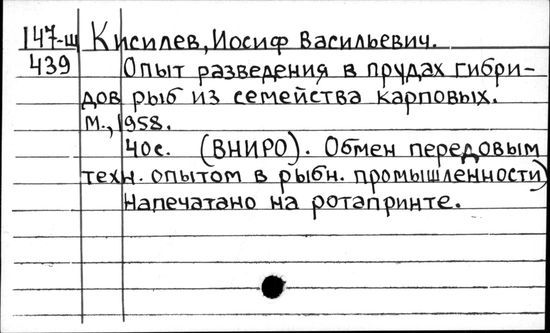 147-щ Кисилев, Иосиф Васильевич.
439 Опыт разведения в прудах гибри-
дов рыб из семейства карповых.
М., 1958.
40с. (ВНИРО). Обмен передовым
техн. опытом в рыбн. промышленности)
Напечатано на ротапринте.